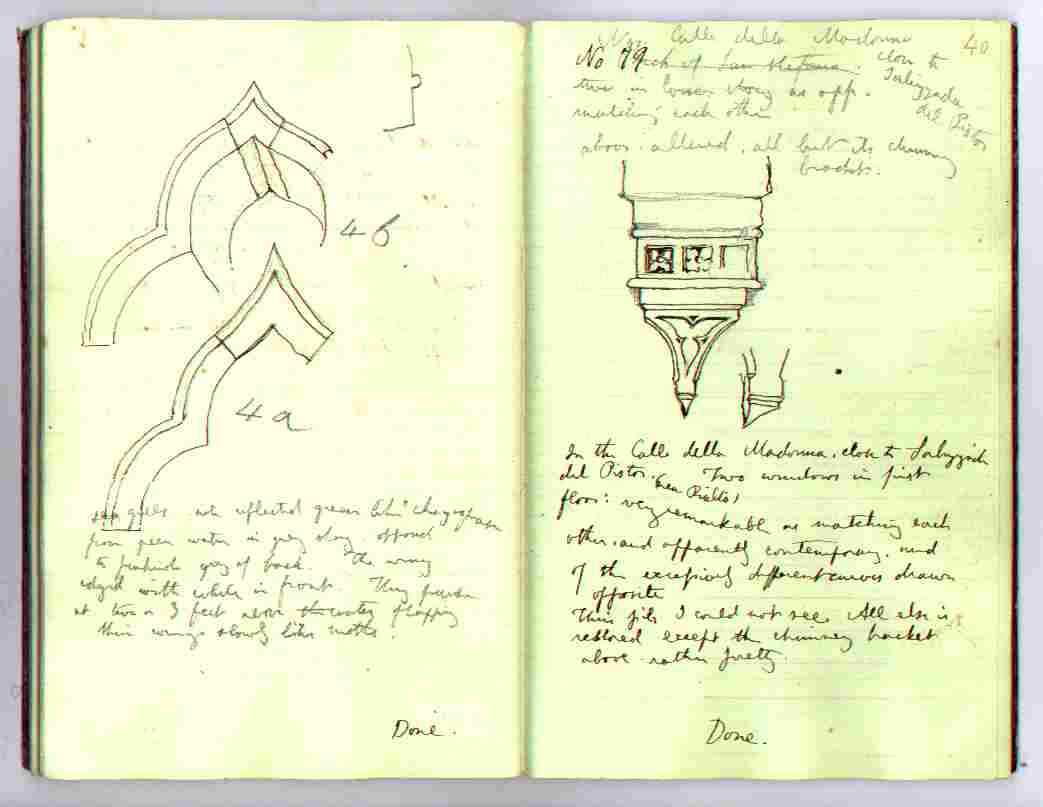 4 b
4 a
sea gulls reflected green
from green water in grey day, opposed
to pinkish grey of back. The wings
edged with white in front. They
at two or 3 feet above the water flapping
their wings slowly like moths.
Done.
40
Calle della Madonna
No 79 Back of San Stefano. close to
two in lower story as opp.
del Pistor
matching each other
above. altered, all but its chimney
brackets.
In the Calle della Madonna, close to
del Pistor. Two windows in first
floor: (near Rialto)
very remarkable as matching each
other, and apparently contemporary, and
of the exceedingly different curves drawn
opposite
Their I could not see. All else is
restored except the chimney bracket
above. rather pretty.
Done.